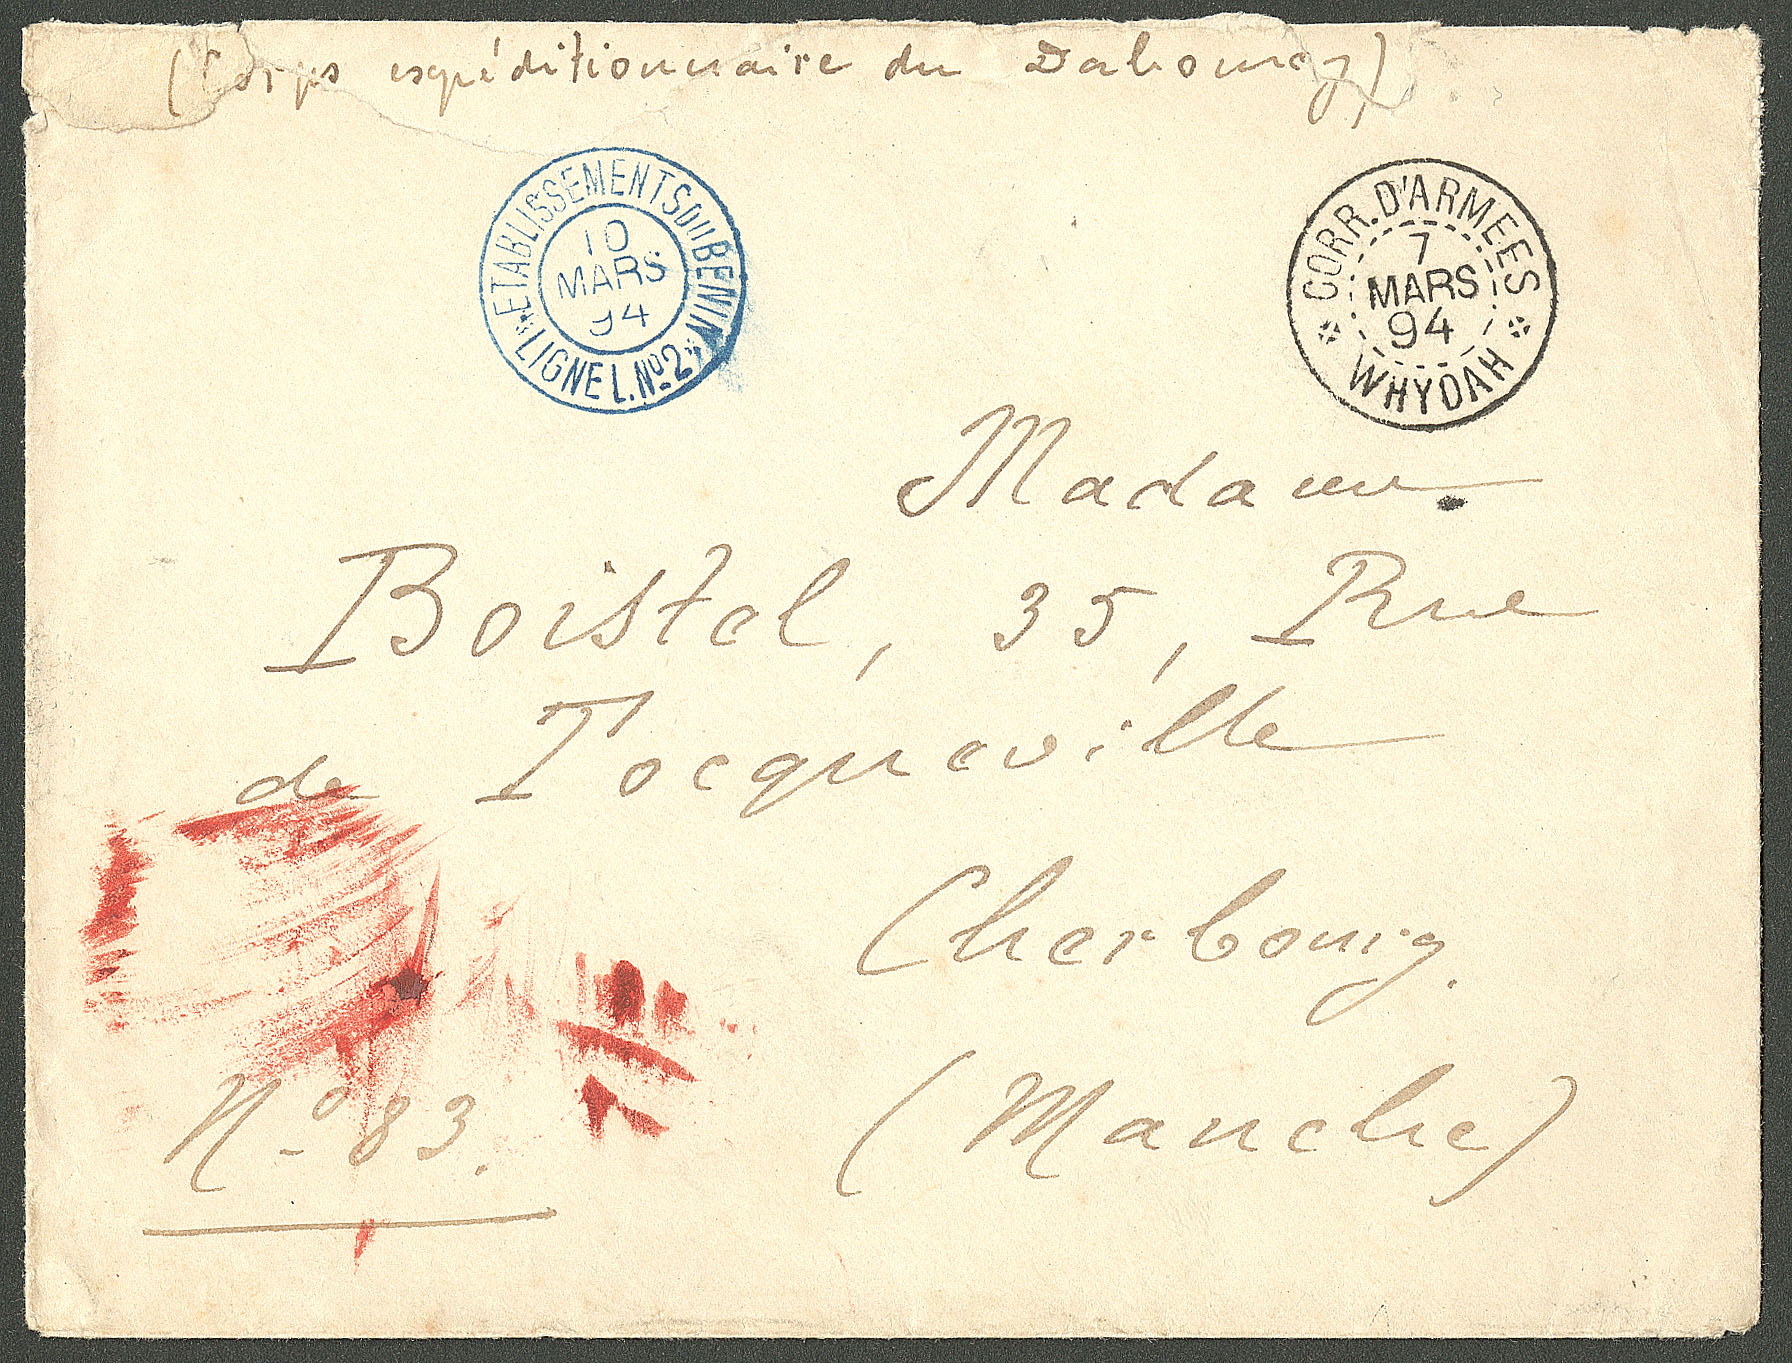 (Corps expéditionnaire du Dahomey)
ETABLISSEMENTS DU BENIN
10
MARS
94
LIGNE L. Nº 2
CORR. D'ARMEES
7
MARS
94
WHYDAH
Madame
Boistel, 35, Rue
de Tocqueville
Cherbourg.
Nº 83.
(Manche)